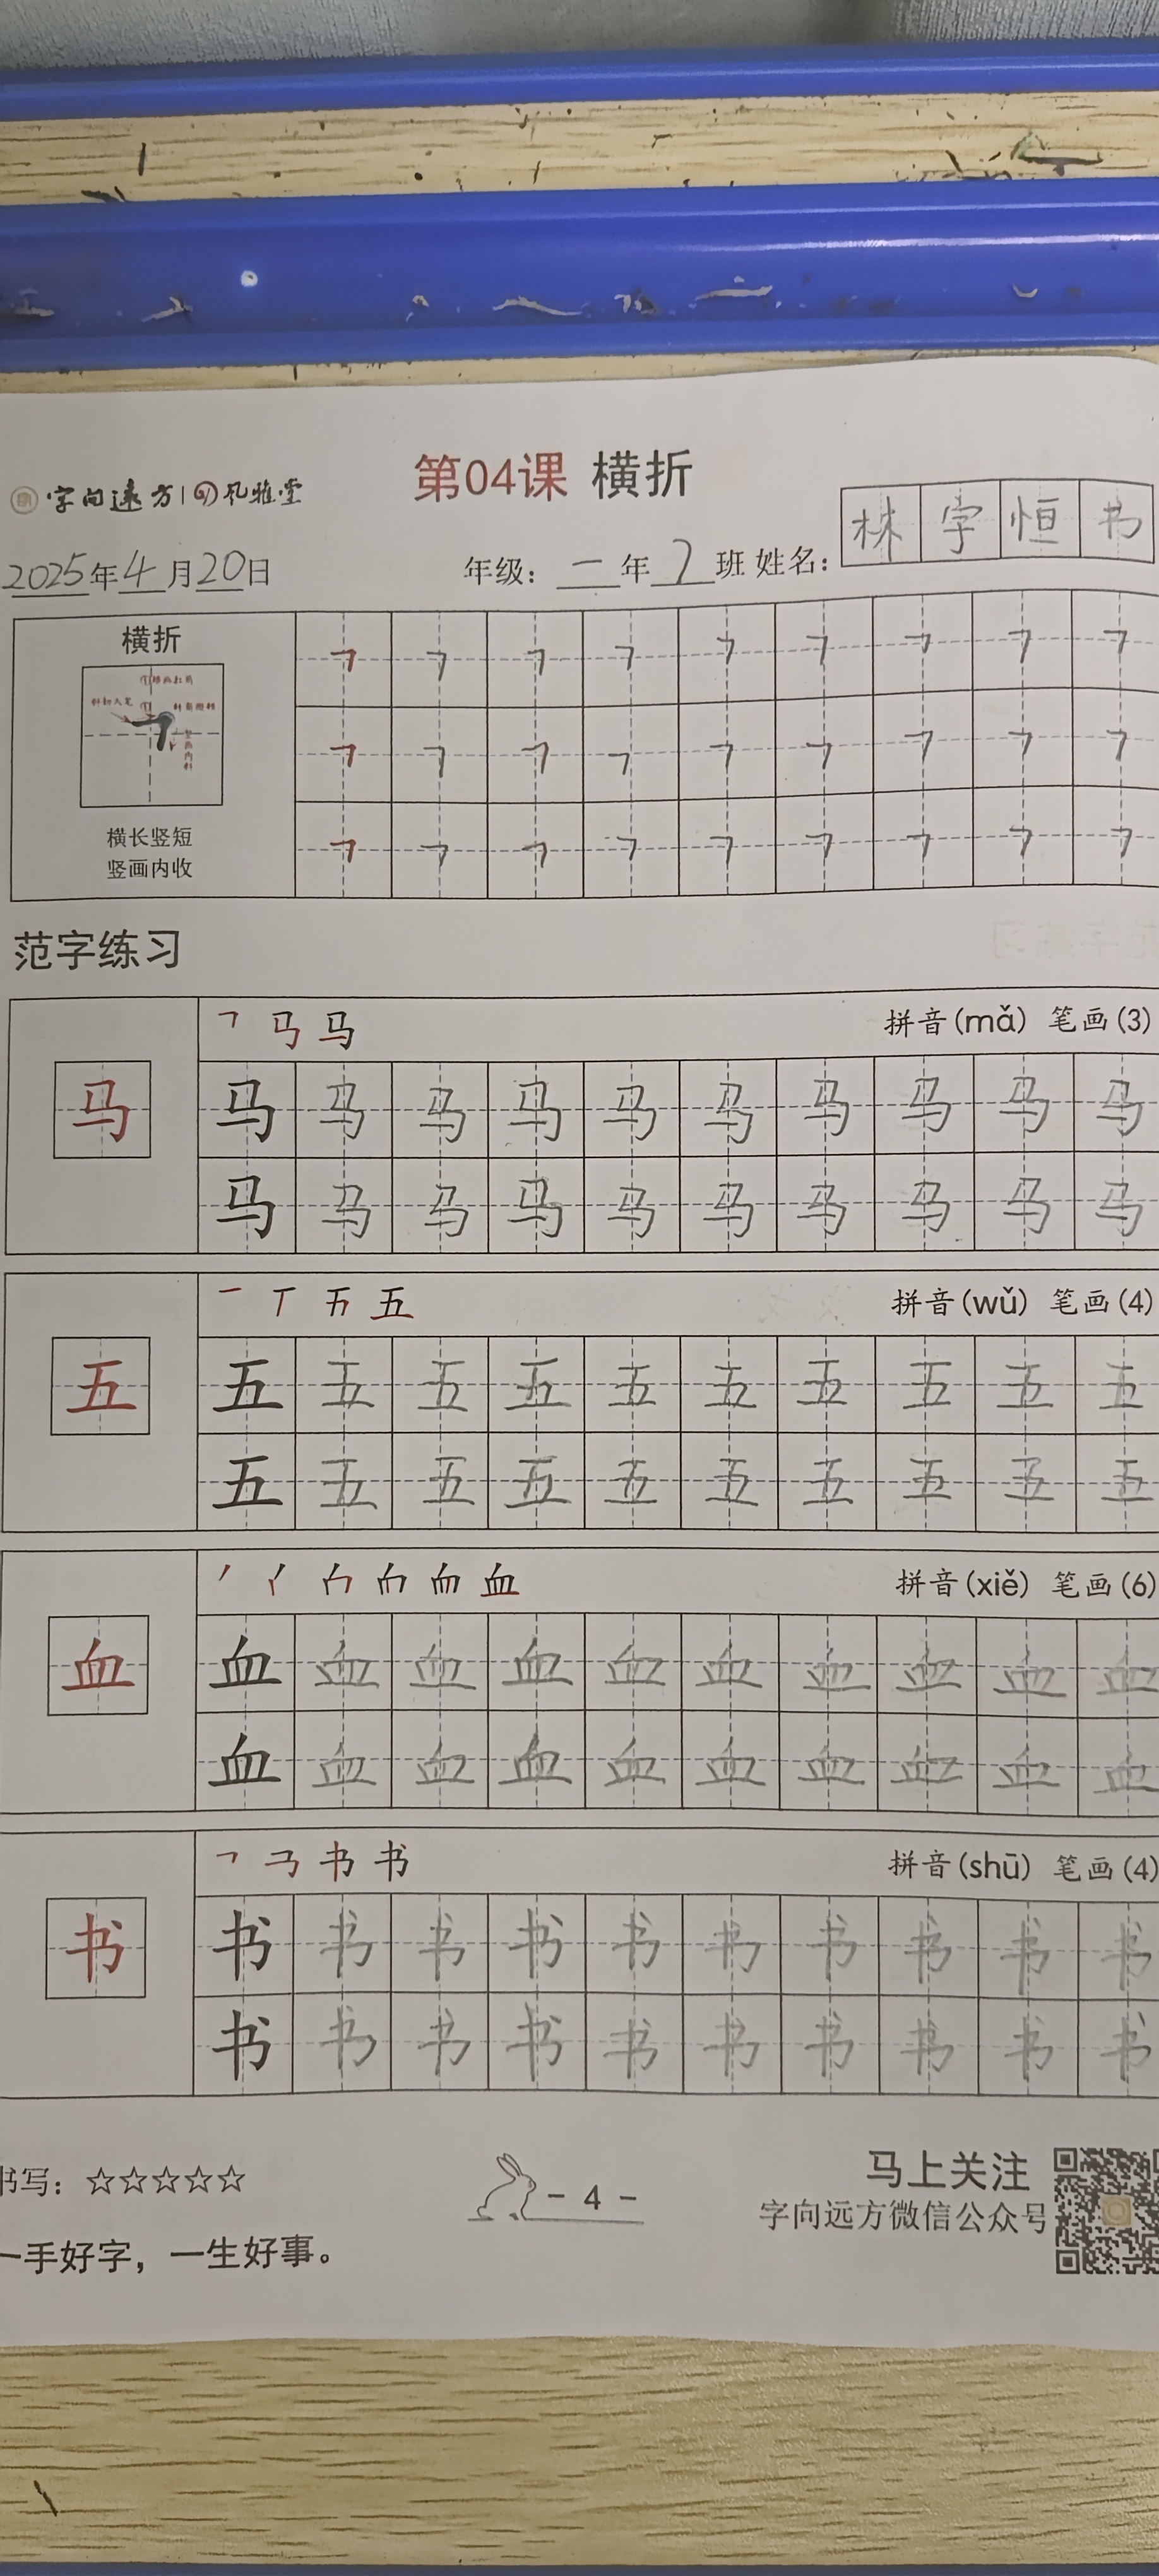 第04课 横折
字向远方 | 风雅堂
2025年4月20日 年级：二年7班 姓名：林字恒书
横折
横长竖短
竖画内收
范字练习
拼音(mǎ) 笔画(3)
马 马 马 马 马 马 马 马 马 马 马
马 马 马 马 马 马 马 马 马 马
拼音(wǔ) 笔画(4)
五 五 五 五 五 五 五 五 五 五 五
五 五 五 五 五 五 五 五 五 五
拼音(xiě) 笔画(6)
血 血 血 血 血 血 血 血 血 血 血
血 血 血 血 血 血 血 血 血 血
拼音(shū) 笔画(4)
书 书 书 书 书 书 书 书 书 书 书
书 书 书 书 书 书 书 书 书 书
书写：☆☆☆☆☆
- 4 -
马上关注
字向远方微信公众号
一手好字，一生好事。